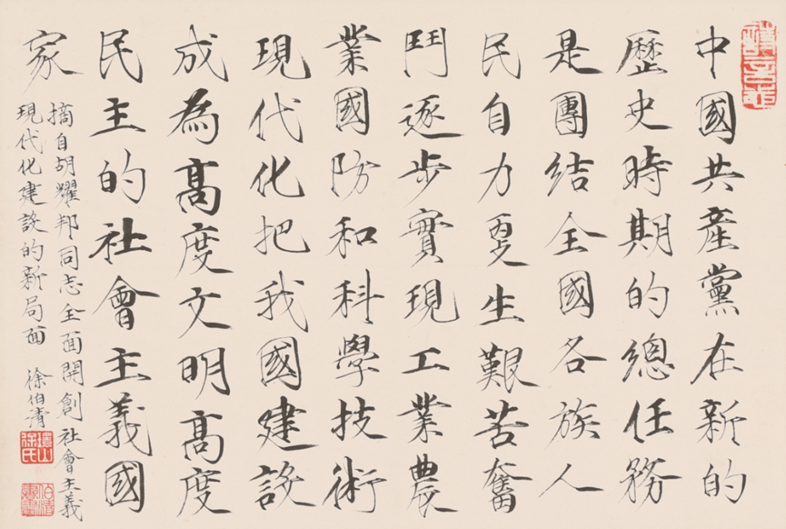 中國共產黨在新的
歷史時期的總任務
是團結全國各族人
民自力更生艱苦奮
鬥逐步實現工業農
業國防和科學技術
現代化把我國建設
成為高度文明高度
民主的社會主義國
家
摘自胡耀邦同志全面開創社會主義
現代化建設的新局面 徐伯清
徐氏
伯清